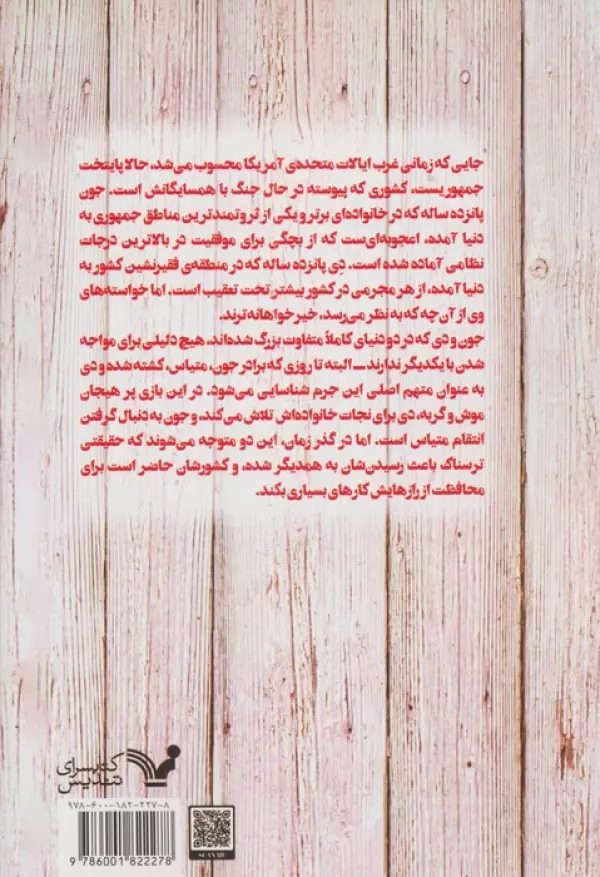 جایی که زمانی غرب ایالات متحده‌ی آمریکا محسوب می‌شد، حالا پایتخت
جمهوریست، کشوری که پیوسته در حال جنگ با همسایگانش است. جون
پانزده ساله که در خانواده‌ای برتر و یکی از ثروتمندترین مناطق جمهوری به
دنیا آمده، اعجوبه‌ای‌ست که از بچگی برای موفقیت در بالاترین درجات
نظامی آماده شده است. دِی پانزده ساله که در منطقه‌ی فقیرنشین کشور به
دنیا آمده، از هر مجرمی در کشور بیشتر تحت تعقیب است. اما خواسته‌های
وی از آن چه که به نظر می‌رسد، خیرخواهانه‌ترند.
جون و دی که در دو دنیای کاملاً متفاوت بزرگ شده‌اند، هیچ دلیلی برای مواجه
شدن با یکدیگر ندارند ــ البته تا روزی که برادر جون، متیاس، کشته شده و دی
به عنوان متهم اصلی این جرم شناسایی می‌شود. در این بازی پر هیجان
موش و گربه، دی برای نجات خانواده‌اش تلاش می‌کند، و جون به دنبال گرفتن
انتقام متیاس است. اما در گذر زمان، این دو متوجه می‌شوند که حقیقتی
ترسناک باعث رسیدن‌شان به همدیگر شده، و کشورشان حاضر است برای
محافظت از رازهایش کارهای بسیاری بکند.
کتابسرای
تندیس
۹۷۸-۶۰۰-۱۸۲-۲۲۷-۸
9 786001 822278
SCAN ME